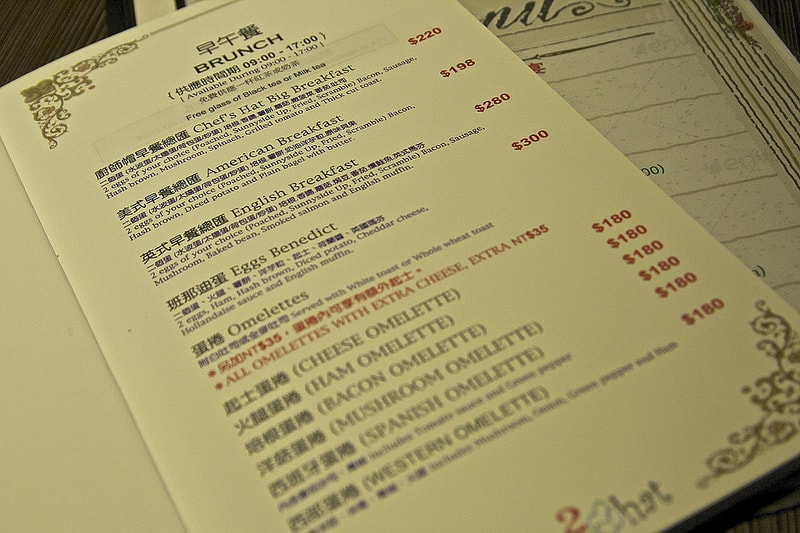 早午餐
BRUNCH
( 供應時間期 09:00 - 17:00 )
( Available During 09:00 - 17:00 )
免費供應一杯紅茶或奶茶
Free glass of Black tea or Milk tea
廚師帽早餐總匯 Chef's Hat Big Breakfast $220
2 eggs of your choice (Poached, Sunnyside Up, Fried, Scramble) Bacon, Sausage,
Hash brown, Mushroom, Spinach, Grilled tomato and Thick cut toast.
美式早餐總匯 American Breakfast $198
2 eggs of your choice (Poached, Sunnyside Up, Fried, Scramble) Bacon,
Hash brown, Diced potato and Plain bagel with butter
英式早餐總匯 English Breakfast $280
2 eggs of your choice (Poached, Sunnyside Up, Fried, Scramble) Bacon, Sausage,
Mushroom, Baked bean, Smoked salmon and English muffin.
班那迪蛋 Eggs Benedict $300
2 eggs, Ham, Hash brown, Diced potato, Cheddar cheese,
Hollandaise sauce and English muffin.
蛋捲 Omelettes
附白吐司或全麥吐司 Served with White toast or Whole wheat toast
*另加NT$35,蛋捲內可享有額外起士*
*ALL OMELETTES WITH EXTRA CHEESE, EXTRA NT$35
起士蛋捲 (CHEESE OMELETTE) $180
火腿蛋捲 (HAM OMELETTE) $180
培根蛋捲 (BACON OMELETTE) $180
洋菇蛋捲 (MUSHROOM OMELETTE) $180
西班牙蛋捲 (SPANISH OMELETTE) $180
Includes Tomato sauce and Green pepper
西部蛋捲 (WESTERN OMELETTE) $180
Includes Mushroom, Onion, Green pepper and Ham
hat